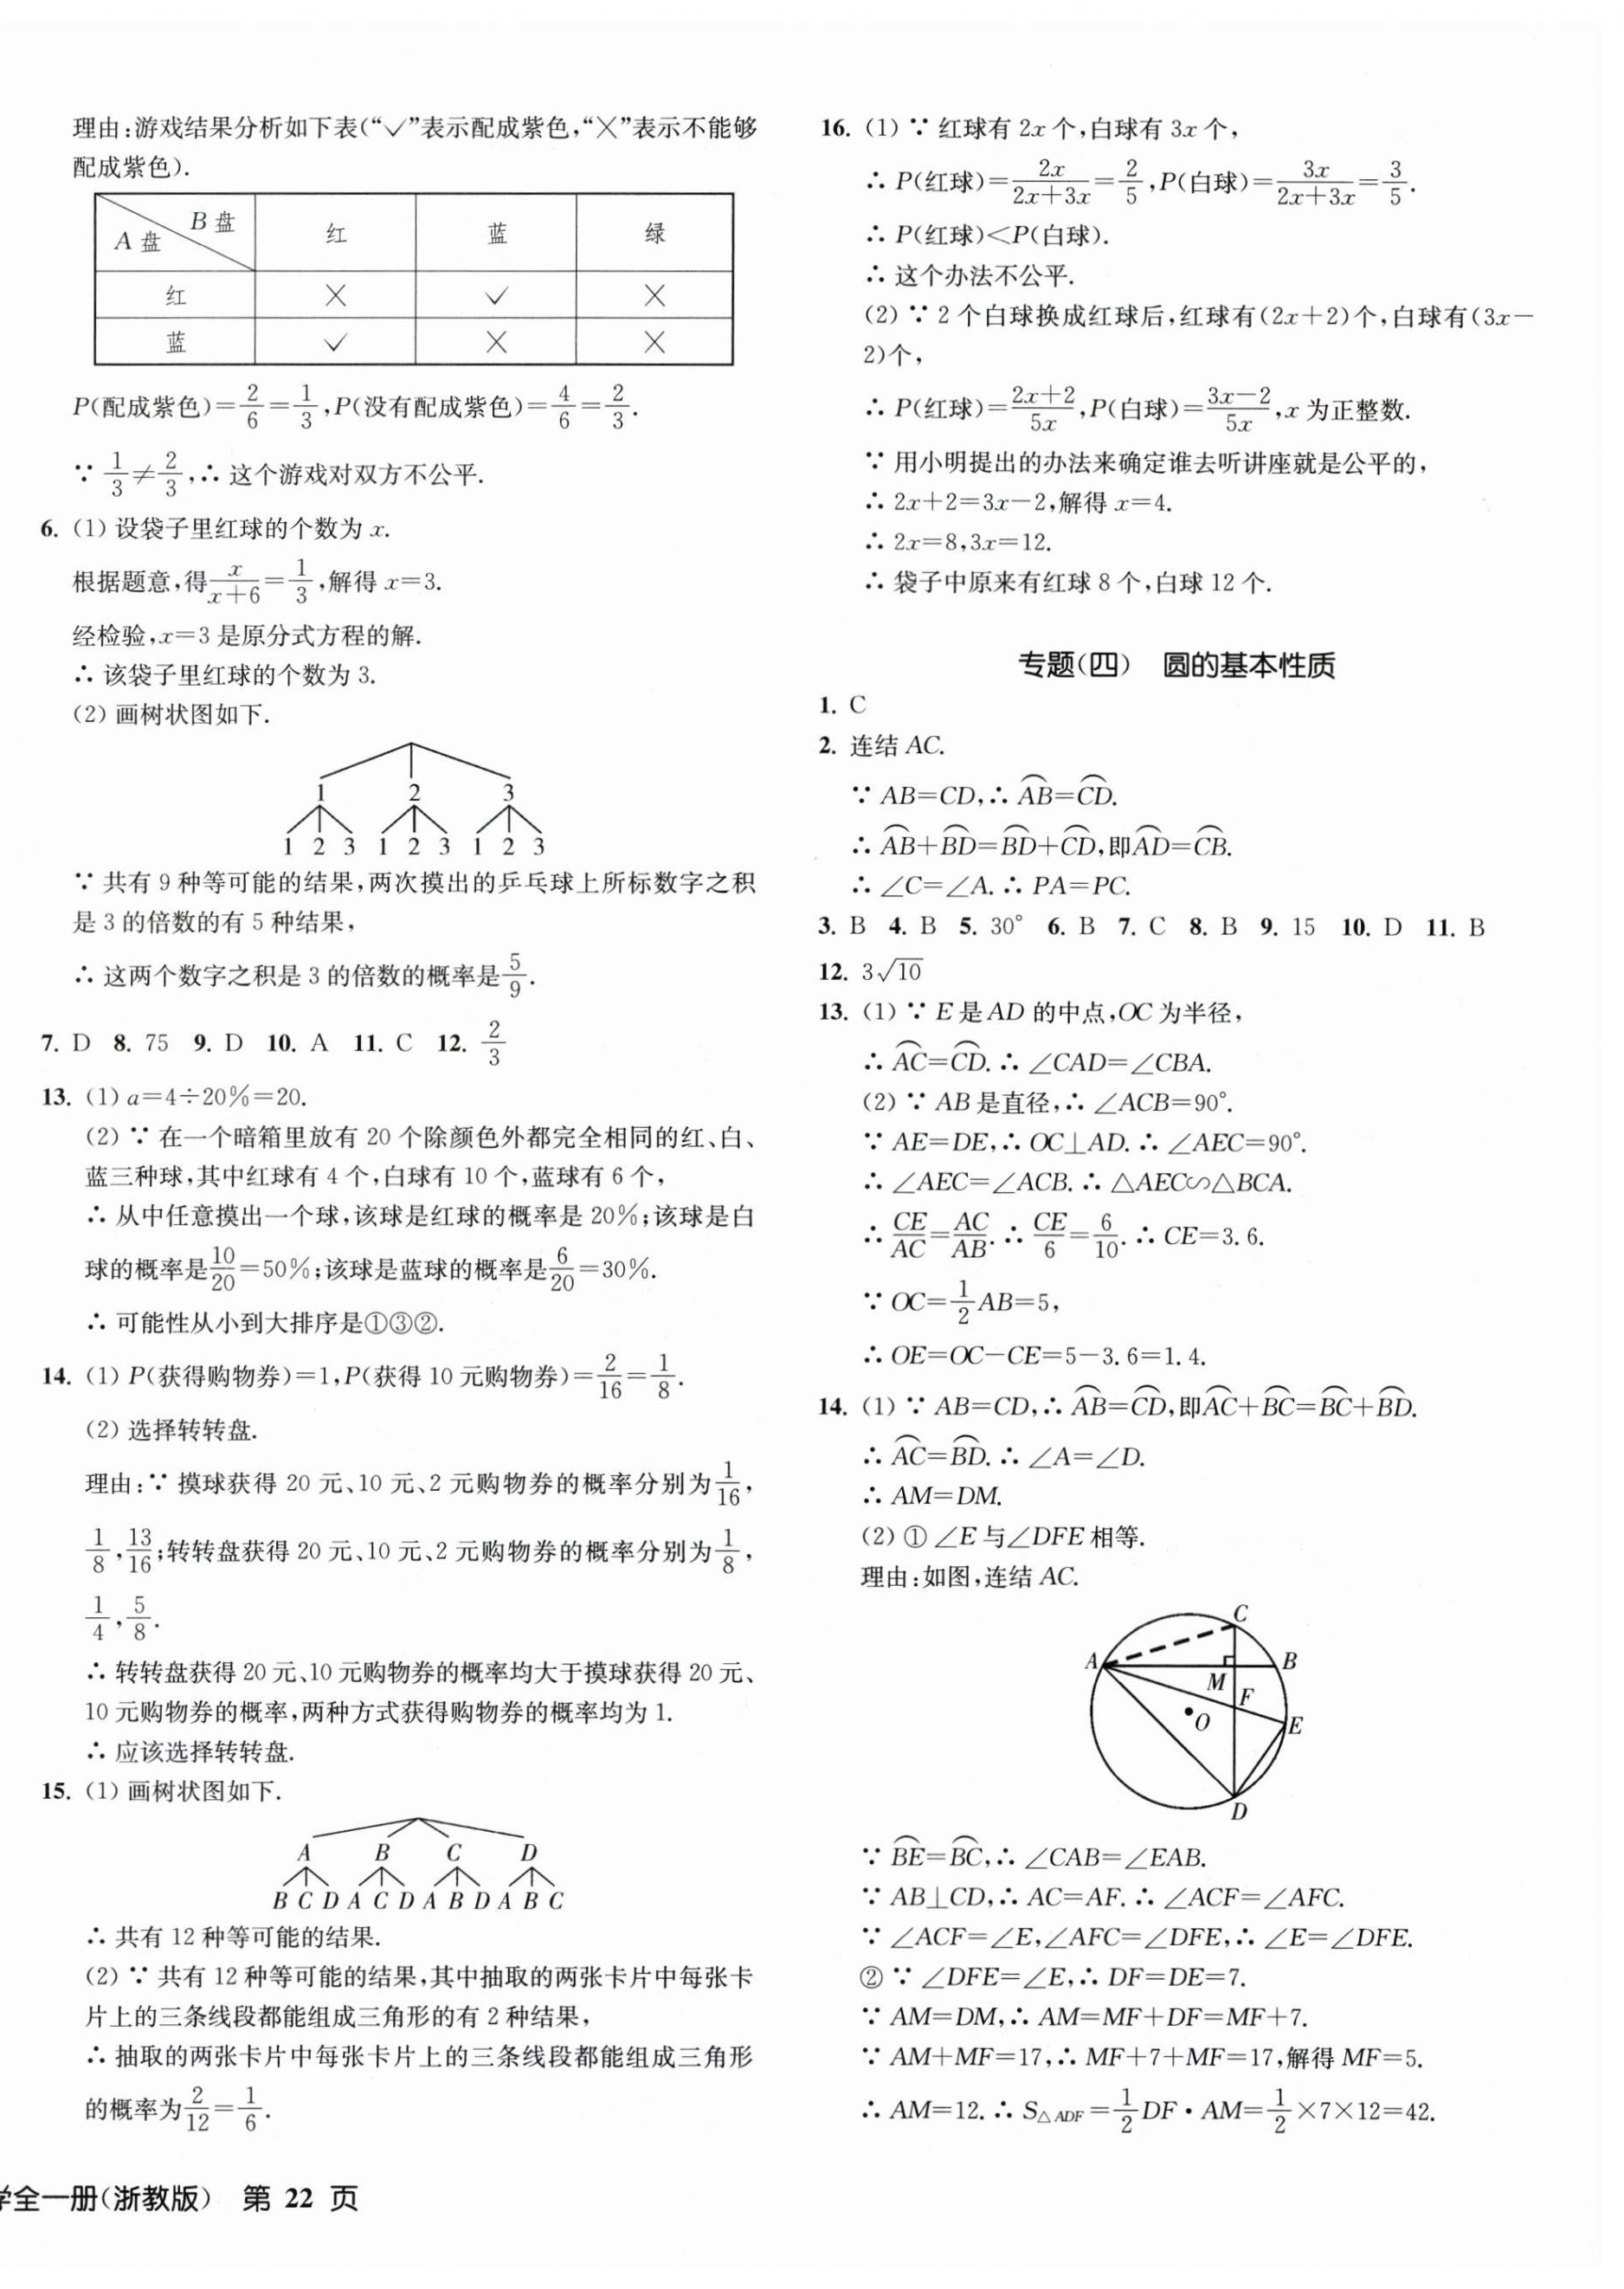 理由:游戏结果分析如下表(“✓”表示配成紫色,“×”表示不能够
配成紫色).
A 盘 B 盘 红 蓝 绿
红 × ✓ ×
蓝 ✓ × ×
P(配成紫色)=2/6=1/3,P(没有配成紫色)=4/6=2/3.
∵ 1/3≠2/3,∴ 这个游戏对双方不公平.
6. (1) 设袋子里红球的个数为 x.
根据题意,得x/(x+6)=1/3,解得 x=3.
经检验,x=3 是原分式方程的解.
∴ 该袋子里红球的个数为 3.
(2) 画树状图如下.
1 2 3
1 2 3 1 2 3 1 2 3
∵ 共有 9 种等可能的结果,两次摸出的乒乓球上所标数字之积
是 3 的倍数的有 5 种结果,
∴ 这两个数字之积是 3 的倍数的概率是5/9.
7. D 8. 75 9. D 10. A 11. C 12. 2/3
13. (1) a=4÷20%=20.
(2) ∵ 在一个暗箱里放有 20 个除颜色外都完全相同的红、白、
蓝三种球,其中红球有 4 个,白球有 10 个,蓝球有 6 个,
∴ 从中任意摸出一个球,该球是红球的概率是 20%;该球是白
球的概率是10/20=50%;该球是蓝球的概率是6/20=30%.
∴ 可能性从小到大排序是①③②.
14. (1) P(获得购物券)=1,P(获得 10 元购物券)=2/16=1/8.
(2) 选择转转盘.
理由:∵ 摸球获得 20 元、10 元、2 元购物券的概率分别为1/16,
1/8,13/16;转转盘获得 20 元、10 元、2 元购物券的概率分别为1/8,
1/4,5/8.
∴ 转转盘获得 20 元、10 元购物券的概率均大于摸球获得 20 元、
10 元购物券的概率,两种方式获得购物券的概率均为 1.
∴ 应该选择转转盘.
15. (1) 画树状图如下.
A B C D
B C D A C D A B D A B C
∴ 共有 12 种等可能的结果.
(2) ∵ 共有 12 种等可能的结果,其中抽取的两张卡片中每张卡
片上的三条线段都能组成三角形的有 2 种结果,
∴ 抽取的两张卡片中每张卡片上的三条线段都能组成三角形
的概率为2/12=1/6.
学全一册(浙教版) 第 22 页
16. (1) ∵ 红球有 2x 个,白球有 3x 个,
∴ P(红球)=2x/(2x+3x)=2/5,P(白球)=3x/(2x+3x)=3/5.
∴ P(红球)<P(白球).
∴ 这个办法不公平.
(2) ∵ 2 个白球换成红球后,红球有(2x+2)个,白球有(3x-
2)个,
∴ P(红球)=(2x+2)/5x,P(白球)=(3x-2)/5x,x 为正整数.
∵ 用小明提出的办法来确定谁去听讲座就是公平的,
∴ 2x+2=3x-2,解得 x=4.
∴ 2x=8,3x=12.
∴ 袋子中原来有红球 8 个,白球 12 个.
专题(四) 圆的基本性质
1. C
2. 连结 AC.
∵ AB=CD,∴ ⌒AB=⌒CD.
∴ ⌒AB+⌒BD=⌒BD+⌒CD,即⌒AD=⌒CB.
∴ ∠C=∠A.∴ PA=PC.
3. B 4. B 5. 30° 6. B 7. C 8. B 9. 15 10. D 11. B
12. 3√10
13. (1) ∵ E 是 AD 的中点,OC 为半径,
∴ ⌒AC=⌒CD.∴ ∠CAD=∠CBA.
(2) ∵ AB 是直径,∴ ∠ACB=90°.
∵ AE=DE,∴ OC⊥AD.∴ ∠AEC=90°.
∴ ∠AEC=∠ACB.∴ △AEC∽△BCA.
∴ CE/AC=AC/AB.∴ CE/6=6/10.∴ CE=3.6.
∵ OC=1/2AB=5,
∴ OE=OC-CE=5-3.6=1.4.
14. (1) ∵ AB=CD,∴ ⌒AB=⌒CD,即⌒AC+⌒BC=⌒BC+⌒BD.
∴ ⌒AC=⌒BD.∴ ∠A=∠D.
∴ AM=DM.
(2) ① ∠E 与∠DFE 相等.
理由:如图,连结 AC.
C
A B
M
F
O E
D
∵ ⌒BE=⌒BC,∴ ∠CAB=∠EAB.
∵ AB⊥CD,∴ AC=AF.∴ ∠ACF=∠AFC.
∵ ∠ACF=∠E,∠AFC=∠DFE,∴ ∠E=∠DFE.
② ∵ ∠DFE=∠E,∴ DF=DE=7.
∵ AM=DM,∴ AM=MF+DF=MF+7.
∵ AM+MF=17,∴ MF+7+MF=17,解得 MF=5.
∴ AM=12.∴ S△ADF=1/2DF·AM=1/2×7×12=42.